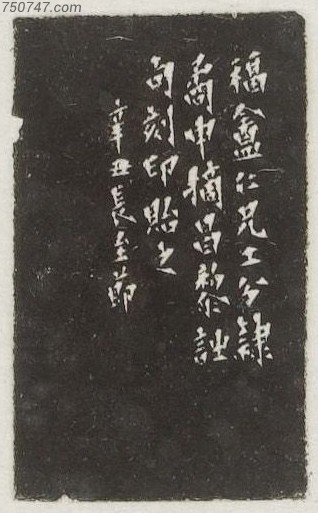 750747.com
福盦仁兄工分隸
矞申摘昌黎詩
句刻印貽之
辛丑長至節